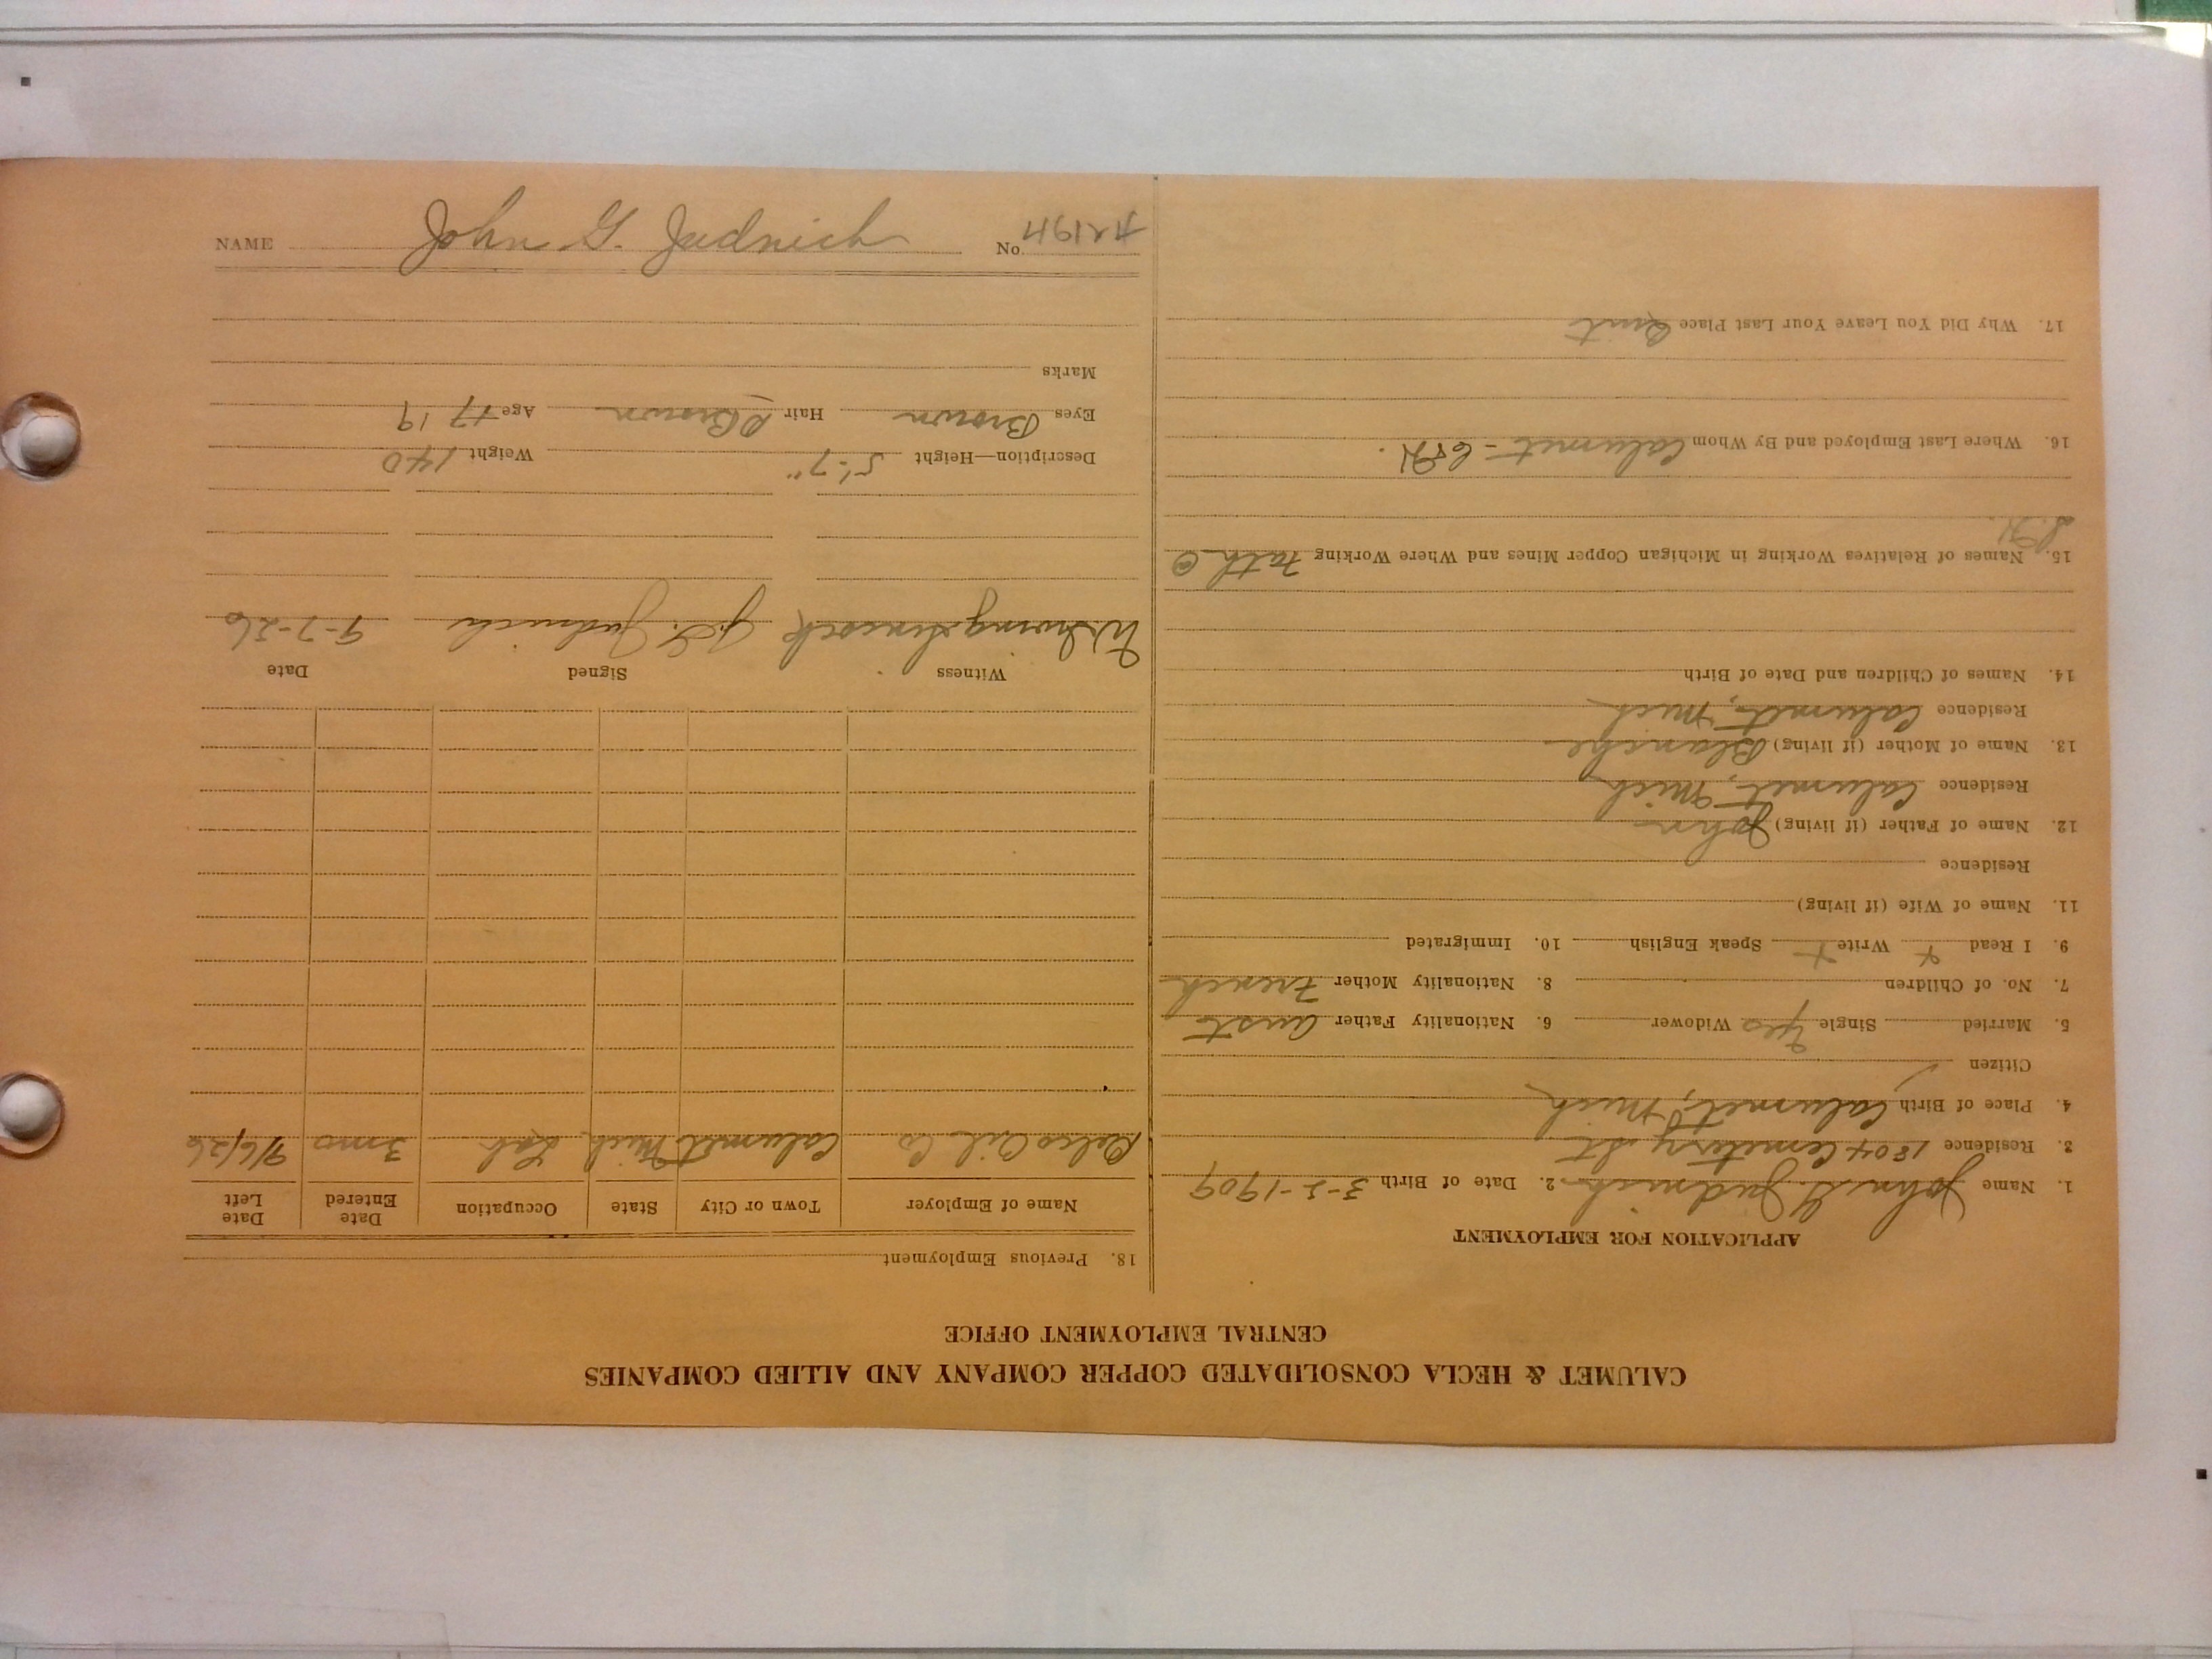 CALUMET & HECLA CONSOLIDATED COPPER COMPANY AND ALLIED COMPANIES
CENTRAL EMPLOYMENT OFFICE
APPLICATION FOR EMPLOYMENT
1. Name John G. Judnich 2. Date of Birth 3-2-1909
3. Residence 1804 Cemetery St
4. Place of Birth Calumet, Mich
Citizen
5. Married Single Yes Widower 6. Nationality Father Aust
7. No. of Children 8. Nationality Mother French
9. I Read x Write x Speak English 10. Immigrated
11. Name of Wife (if living)
Residence
12. Name of Father (if living) John
Residence Calumet, Mich
13. Name of Mother (if living) Blanche
Residence Calumet, Mich
14. Names of Children and Date of Birth
15. Names of Relatives Working in Michigan Copper Mines and Where Working Fath @
16. Where Last Employed and By Whom Calumet - C&H.
17. Why Did You Leave Your Last Place Quit
18. Previous Employment
Name of Employer Town or City State Occupation Date Entered Date Left
Oil Co Calumet Mich Lab 3 mo 9/6/26
Witness Signed Date
J.G. Judnich 9-7-26
Description—Height 5'-7" Weight 140
Eyes Brown Hair Brown Age 17 19
Marks
NAME John G. Judnich No.